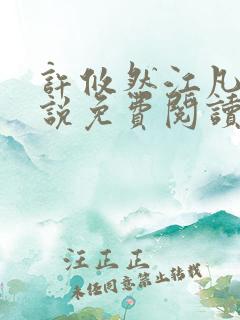 許攸然江凡
說免費閱讀
汪正正
未任同意禁止轉載